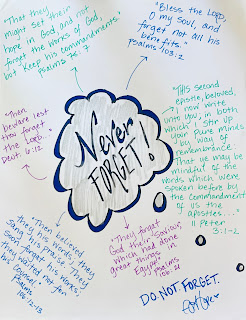 "That they
might set their
hope in God and not
forget the works of God,
but keep his commandments."
Psalm 78:7
"Bless the Lord,
O my soul, and
forget not all his
benefits."
psalms 103:2
"Then
beware lest
thou forget
the Lord."
Deut 6:12
Never
FORGET!
"THIS second
epistle, beloved,
I now write
unto you; in both
which I stir up
your pure minds
by way of
remembrance:
That ye may be
mindful of the
words which were
spoken before by
the commandment
of us the
apostles..."
II Peter
3:1-2
"Then believed
they his words; they
sang his praise. They
soon forgat his works;
they waited not for
his
counsel."
Psalms
106:12-13
"They forgat
God their Saviour,
which had done
great things in
Egypt."
psalms
106:21
DO NOT FORGET.